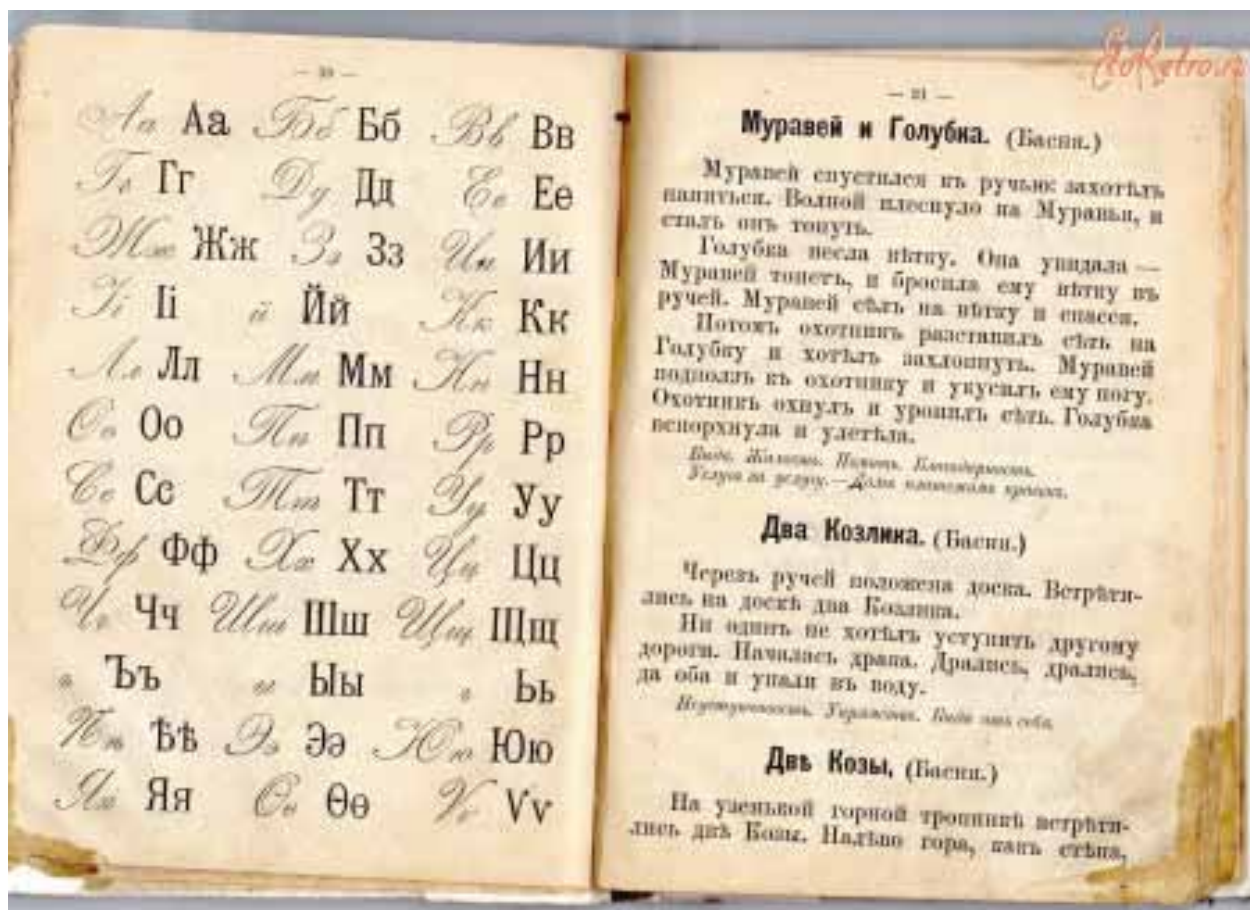 — 30 —
Аа Аа Бб Бб Вв Вв
Гг Гг Дд Дд Ее Ее
Жж Жж Зз Зз Ии Ии
Іі Іі й Йй Кк Кк
Лл Лл Мм Мм Нн Нн
Оо Оо Пп Пп Рр Рр
Сс Сс Тт Тт Уу Уу
Фф Фф Хх Хх Цц Цц
Чч Чч Шш Шш Щщ Щщ
ъ Ъъ ы Ыы ь Ьь
Ѣѣ Ѣѣ Ээ Ээ Юю Юю
Яя Яя Ѳѳ Ѳѳ Ѵѵ Ѵѵ
— 31 —
Муравей и Голубка. (Басня.)
Муравей спустился къ ручью: захотѣлъ
напиться. Волной плеснуло на Муравья, и
сталъ онъ тонуть.
Голубка несла вѣтку. Она увидала —
Муравей тонетъ, и бросила ему вѣтку въ
ручей. Муравей сѣлъ на вѣтку и спасся.
Потомъ охотникъ разставилъ сѣть на
Голубку и хотѣлъ захлопнуть. Муравей
подползъ къ охотнику и укусилъ ему ногу.
Охотникъ охнулъ и уронилъ сѣть. Голубка
вспорхнула и улетѣла.
Бѣда. Жалость. Помощь. Благодарность.
Услуга за услугу.—Долгъ платежомъ красенъ.
Два Козлика. (Басня.)
Черезъ ручей положена доска. Встрѣти-
лись на доскѣ два Козлика.
Ни одинъ не хотѣлъ уступить другому
дороги. Началась драка. Дрались, дрались,
да оба и упали въ воду.
Неуступчивость. Упрямство. Бѣда отъ себя.
Двѣ Козы, (Басня.)
На узенькой горной тропинкѣ встрѣти-
лись двѣ Козы. Налѣво гора, какъ стѣна,